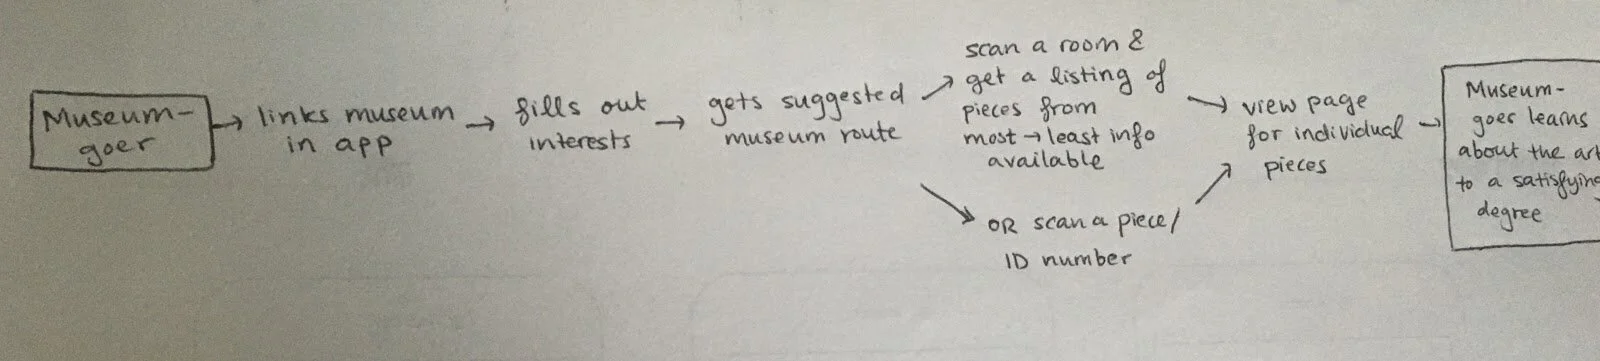 Museum-
goer
→ links museum
in app
→ fills out
interests
→ gets suggested
museum route
scan a room &
→ get a listing of
pieces from
most → least info
available
→ OR scan a piece/
ID number
→ view page
for individual
pieces
→ Museum-
goer learns
about the art
to a satisfying
degree